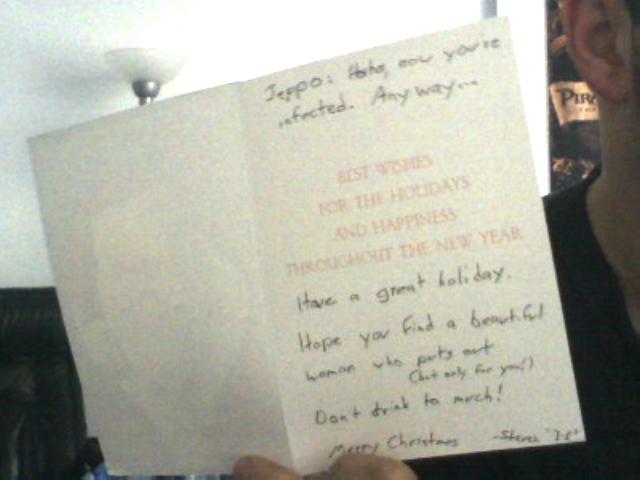 Jeppo: Haha, now you're
infected. Anyway...
BEST WISHES
FOR THE HOLIDAYS
AND HAPPINESS
THROUGHOUT THE NEW YEAR
Have a great holiday.
Hope you find a beautiful
woman who puts out
(but only for you!)
Don't drink to much!
Merry Christmas -Steven
PIRA